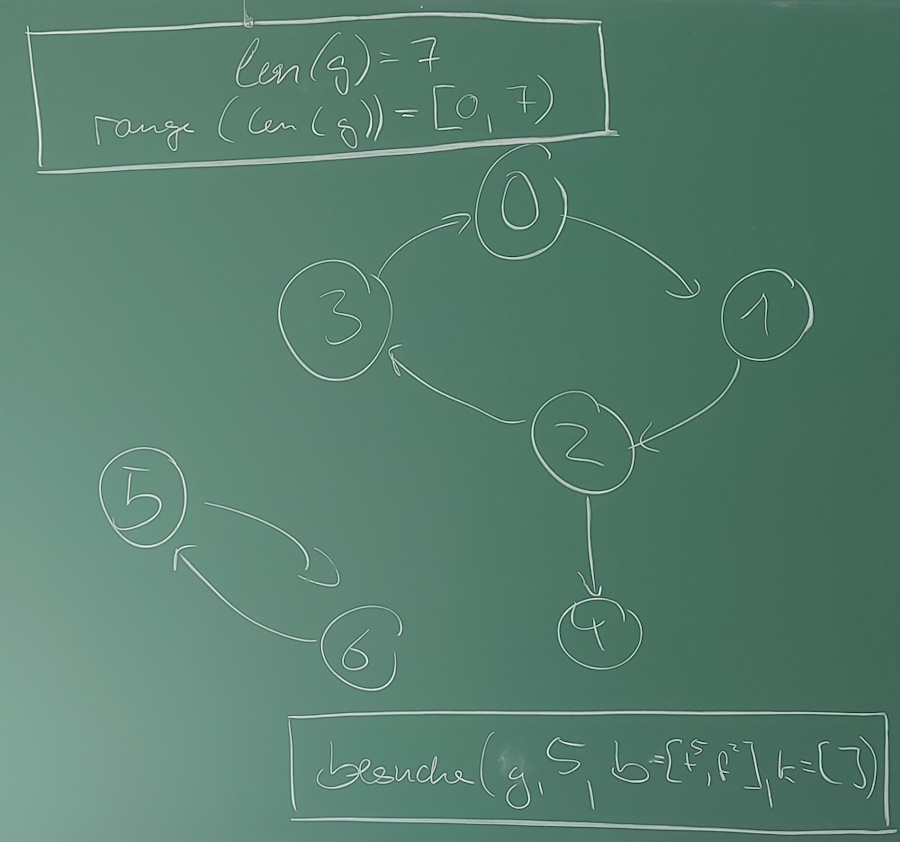 len(g)=7
range (len(g))=[0,7)
0
3
1
2
5
4
6
besuche(g,5,b=[t⁵,f²],k=[])